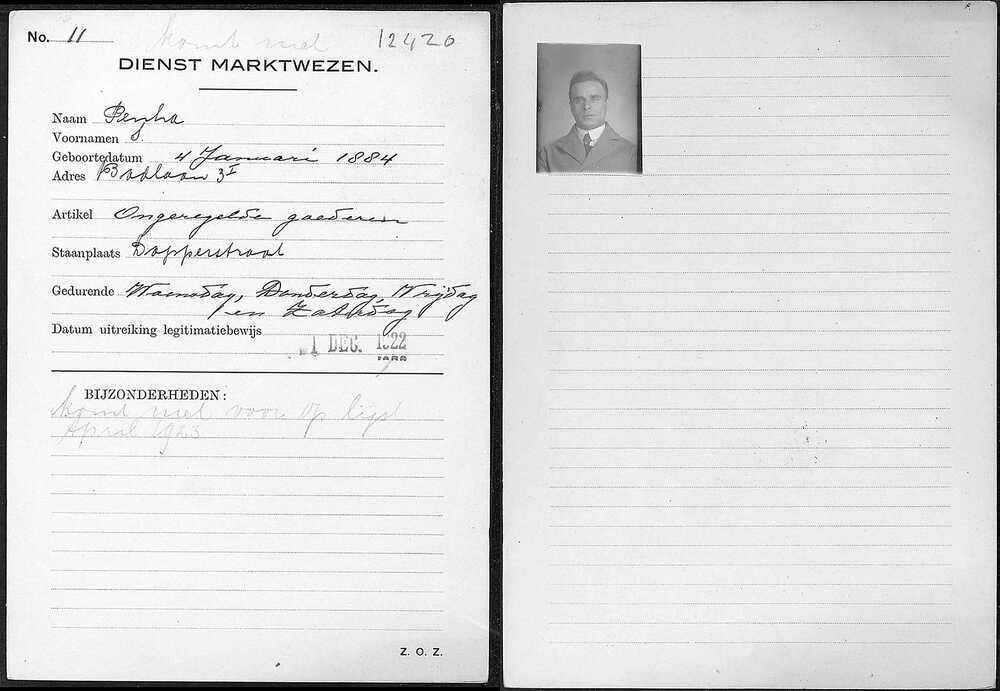 No. 11 komt niet 12420
DIENST MARKTWEZEN.
Naam Peÿra
Voornamen J.
Geboortedatum 4 Januari 1884
Adres 3 I
Artikel Ongeregelde goederen
Staanplaats Dapperstraat
Gedurende Woensdag, Donderdag, Vrijdag
en Zaterdag
Datum uitreiking legitimatiebewijs
1 DEC. 1922
BIJZONDERHEDEN:
komt niet voor op lijst
April 1923
Z. O. Z.